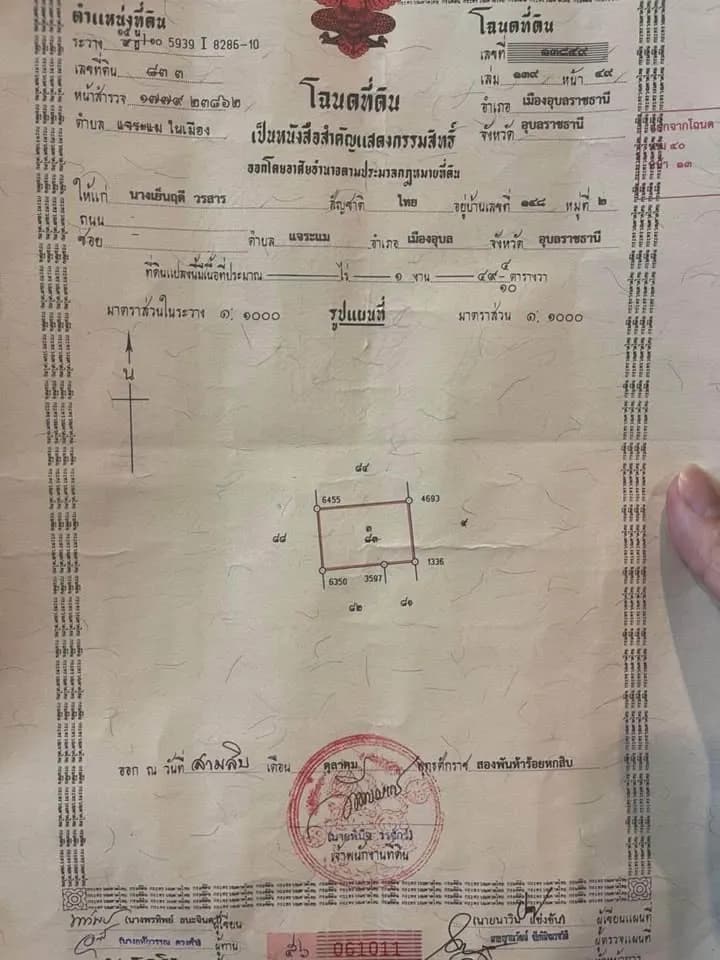 ตำแหน่งที่ดิน
ระวาง 5939 I 8286-10
เลขที่ดิน ๘๓ ๓
หน้าสำรวจ ๑๗๗๙ ๒๓๘๖๒
ตำบล แจระแม ในเมือง
โฉนดที่ดิน
เลขที่ ๑๓๘๔๙
เล่ม ๑๓๙ หน้า ๔๙
อำเภอ เมืองอุบลราชธานี
จังหวัด อุบลราชธานี
โฉนดที่ดิน
เป็นหนังสือสำคัญแสดงกรรมสิทธิ์
ออกโดยอาศัยอำนาจตามประมวลกฎหมายที่ดิน
ออกจากโฉนด
๔๐
๑๓
ให้แก่ นางเย็นฤดี วรสาร สัญชาติ ไทย อยู่บ้านเลขที่ ๑๔๘ หมู่ที่ ๒
ถนน -
ซอย - ตำบล แจระแม อำเภอ เมืองอุบล จังหวัด อุบลราชธานี
ที่ดินแปลงนี้มีเนื้อที่ประมาณ - ไร่ ๑ งาน ๔๙ ๕/๑๐ ตารางวา
มาตราส่วนในระวาง ๑: ๑๐๐๐ รูปแผนที่ มาตราส่วน ๑: ๑๐๐๐
น
๘๔
6455 4693
๘๘ ๓ ๙
๘๓
6350 3597 1336
๘๒ ๘๑
ออก ณ วันที่ สามสิบ เดือน ตุลาคม พุทธศักราช สองพันห้าร้อยหกสิบ
เจ้าพนักงานที่ดิน
ผู้เขียน
ผู้ทาน
ผู้เขียนแผนที่
ผู้ตรวจแผนที่
061011